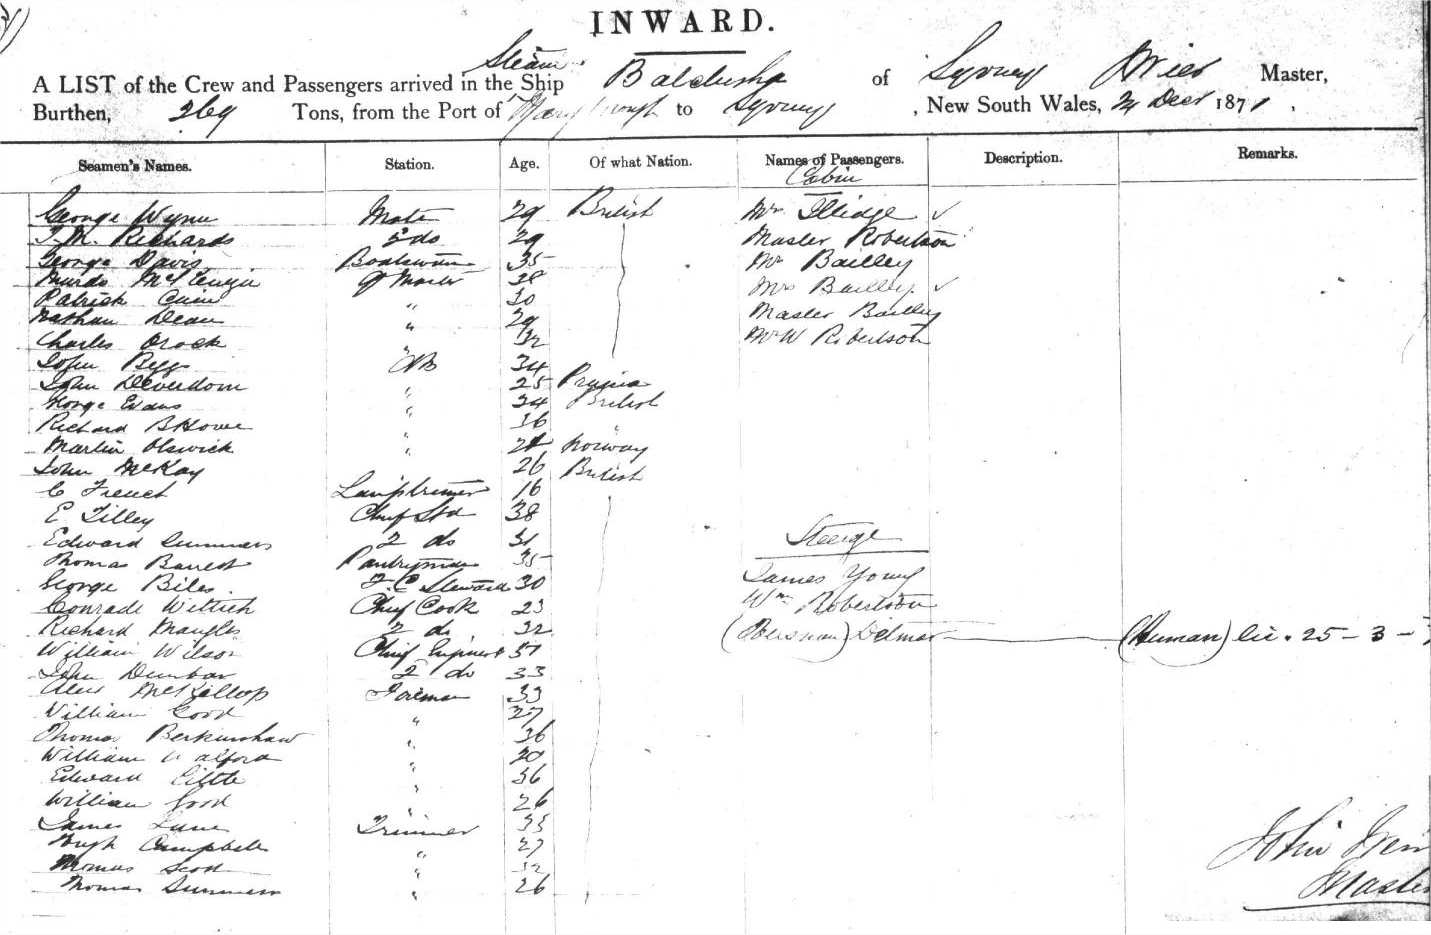 INWARD.
Steam
A LIST of the Crew and Passengers arrived in the Ship Balclutha of Sydney Master,
Burthen, 269 Tons, from the Port of Maryborough to Sydney, New South Wales, 24 Decr 1871,
Seamen's Names. Station. Age. Of what Nation. Names of Passengers. Description. Remarks.
Cabin
George Wynn Mate 29 British Mr Illidge ✓
T. M. Richards 2 do 29 Master Robertson
George Davis Boatswain 35 Mr Bailley
Murdo 38 Mrs Bailley ✓
Patrick " 30 Master Bailley
Nathan Dean " 29 Mr W Robertson
Charles Orock " 32
John Begg AB 34
John Deverdom " 25 Prussia
George Evans " 24 British
Richard B Howe " 36 "
Martin Olswick " 24 Norway
John McKay 26 British
C French Lamptrimmer 16
E Tilley Chief Std 38
Edward Summers 2 do 31 Steerge
Thomas Barrett Pantryman 35
George Biles F. C Steward 30 James Young
Conrade Wittich Chief Cook 23 Wm Robertson
Richard Mangles 2 do 32 ( ) Delmar (Human) lic. 25-3-7
William Wilson Chief Engineer 51
John Dunbar 2 do 33
Alexr McKillop Fireman 33
William Good " 27
Thomas Berkinshaw " 36
William Walford " 20
Edward Little " 36
William Good " 26
James Lane Trimmer 33
Hugh Campbell " 27
Thomas Scott " 32
Thomas Summers " 26
John
Master